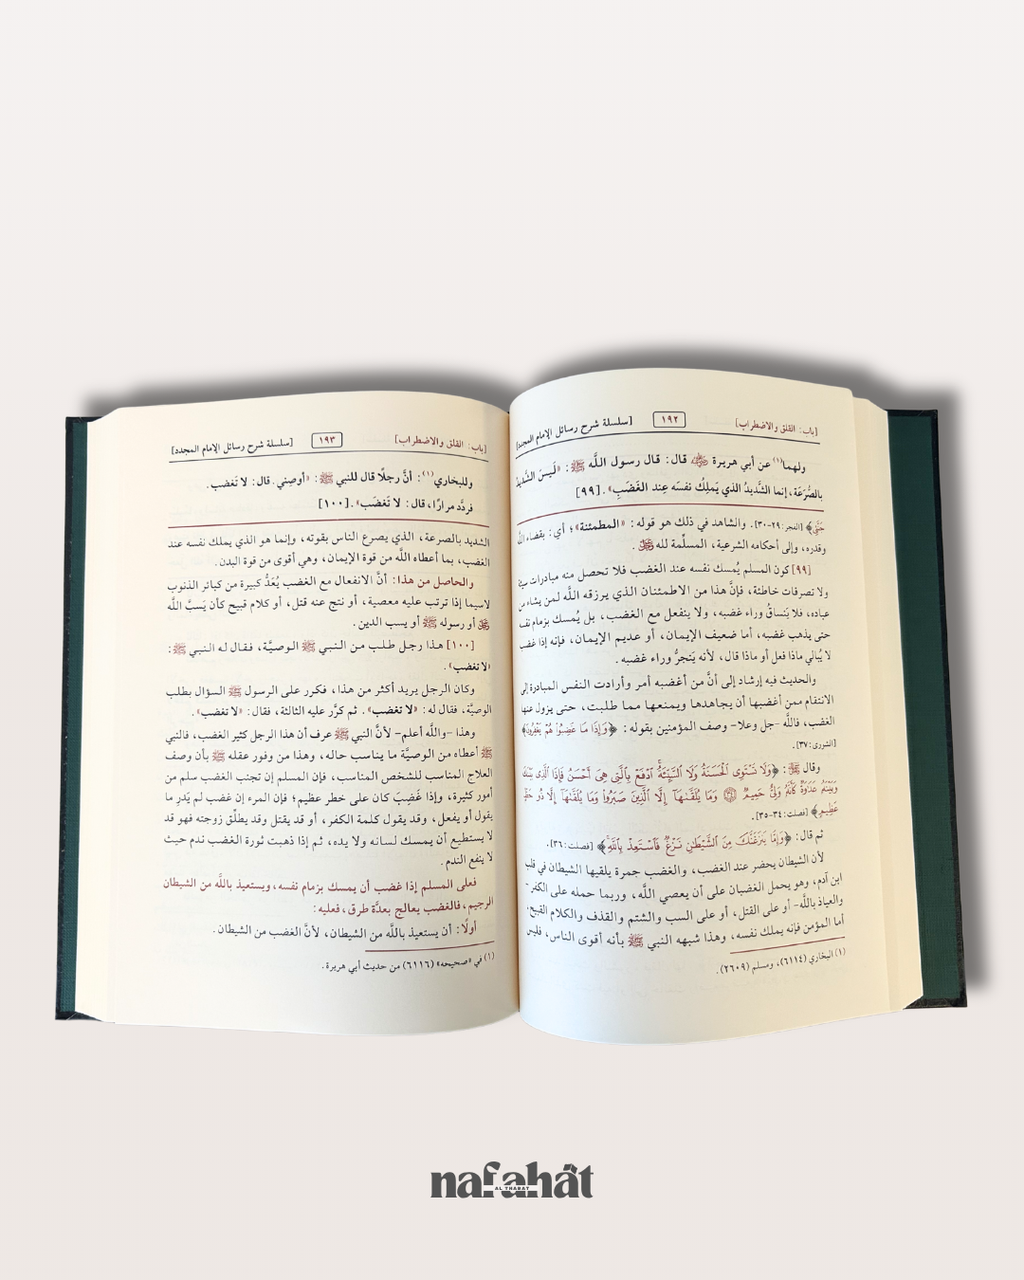 [باب: القلق والاضطراب] ١٩٢ [سلسلة شرح رسائل الإمام المجدد]
ولهما(١) عن أبي هريرة ﷺ قال: قال رسول اللَّه ﷺ: «لَيسَ الشَّديدُ
بالصُّرَعَة، إنما الشَّديدُ الذي يَملِكُ نفسَه عِند الغَضَبِ». [٩٩]
جَنَّتِي﴾ [الفجر: ٢٩-٣٠]. والشاهد في ذلك هو قوله: «المطمئنة»؛ أي: بقضاء اللَّه
وقدره، وإلى أحكامه الشرعية، المسلِّمة لله ﷻ.
[٩٩] كون المسلم يُمسك نفسه عند الغضب فلا تحصل منه مبادرات سيئة
ولا تصرفات خاطئة، فإنَّ هذا من الاطمئنان الذي يرزقه اللَّه لمن يشاء من
عباده، فلا يَنساقُ وراء غضبه، ولا ينفعل مع الغضب، بل يُمسك بزمام نفسه
حتى يذهب غضبه، أما ضعيف الإيمان، أو عديم الإيمان، فإنه إذا غضب
لا يُبالي ماذا فعل أو ماذا قال، لأنه يَنجرُّ وراء غضبه.
والحديث فيه إرشاد إلى أنَّ من أغضبه أمر وأرادت النفس المبادرة إلى
الانتقام ممن أغضبها أن يجاهدها ويمنعها مما طلبت، حتى يزول عنها
الغضب، فاللَّه -جل وعلا- وصف المؤمنين بقوله: ﴿وَإِذَا مَا غَضِبُوا هُمْ يَغْفِرُونَ﴾
[الشورى: ٣٧].
وقال ﷻ: ﴿وَلَا تَسْتَوِى ٱلْحَسَنَةُ وَلَا ٱلسَّيِّئَةُ ٱدْفَعْ بِٱلَّتِى هِىَ أَحْسَنُ فَإِذَا ٱلَّذِى بَيْنَكَ
وَبَيْنَهُۥ عَدَٰوَةٌ كَأَنَّهُۥ وَلِىٌّ حَمِيمٌ ٣٤ وَمَا يُلَقَّىٰهَآ إِلَّا ٱلَّذِينَ صَبَرُوا۟ وَمَا يُلَقَّىٰهَآ إِلَّا ذُو حَظٍّ
عَظِيمٍ﴾ [فصلت: ٣٤-٣٥].
ثم قال: ﴿وَإِمَّا يَنزَغَنَّكَ مِنَ ٱلشَّيْطَٰنِ نَزْغٌ فَٱسْتَعِذْ بِٱللَّهِ﴾ [فصلت: ٣٦].
لأن الشيطان يحضر عند الغضب، والغضب جمرة يلقيها الشيطان في قلب
ابن آدم، وهو يحمل الغضبان على أن يعصي اللَّه، وربما حمله على الكفر -
والعياذ باللَّه- أو على القتل، أو على السب والشتم والقذف والكلام القبيح.
أما المؤمن فإنه يملك نفسه، وهذا شبهه النبي ﷺ بأنه أقوى الناس، فليس
(١) البخاري (٦١١٤)، ومسلم (٢٦٠٩).
[باب: القلق والاضطراب] ١٩٣ [سلسلة شرح رسائل الإمام المجدد]
وللبخاري(١): أنَّ رجلًا قال للنبي ﷺ: «أوصِني. قال: لا تَغضب.
فردَّد مرارًا، قال: لا تَغضَب». [١٠٠]
الشديد بالصرعة، الذي يصرع الناس بقوته، وإنما هو الذي يملك نفسه عند
الغضب، بما أعطاه اللَّه من قوة الإيمان، وهي أقوى من قوة البدن.
والحاصل من هذا: أنَّ الانفعال مع الغضب يُعَدُّ كبيرة من كبائر الذنوب
لاسيما إذا ترتب عليه معصية، أو نتج عنه قتل، أو كلام قبيح كأن يَسبَّ اللَّه
ﷻ أو رسوله ﷺ أو يسب الدين.
[١٠٠] هذا رجل طلب من النبي ﷺ الوصيَّة، فقال له النبي ﷺ:
«لا تغضب».
وكان الرجل يريد أكثر من هذا، فكرر على الرسول ﷺ السؤال بطلب
الوصيَّة، فقال له: «لا تغضب». ثم كرَّر عليه الثالثة، فقال: «لا تغضب».
وهذا -واللَّه أعلم- لأنَّ النبي ﷺ عرف أن هذا الرجل كثير الغضب، فالنبي
ﷺ أعطاه من الوصيَّة ما يناسب حاله، وهذا من وفور عقله ﷺ بأن وصف
العلاج المناسب للشخص المناسب، فإن المسلم إن تجنب الغضب سلم من
أمور كثيرة، وإذا غَضِبَ كان على خطر عظيم؛ فإن المرء إن غضب لم يَدرِ ما
يقول أو يفعل، وقد يقول كلمة الكفر، أو قد يقتل وقد يطلّق زوجته فهو قد
لا يستطيع أن يمسك لسانه ولا يده، ثم إذا ذهبت ثورة الغضب ندم حيث
لا ينفع الندم.
فعلى المسلم إذا غضب أن يمسك بزمام نفسه، ويستعيذ باللَّه من الشيطان
الرجيم، فالغضب يعالج بعدَّة طرق، فعليه:
أولًا: أن يستعيذ باللَّه من الشيطان، لأنَّ الغضب من الشيطان.
(١) في «صحيحه» (٦١١٦) من حديث أبي هريرة.
nafahāt
AL THABAT